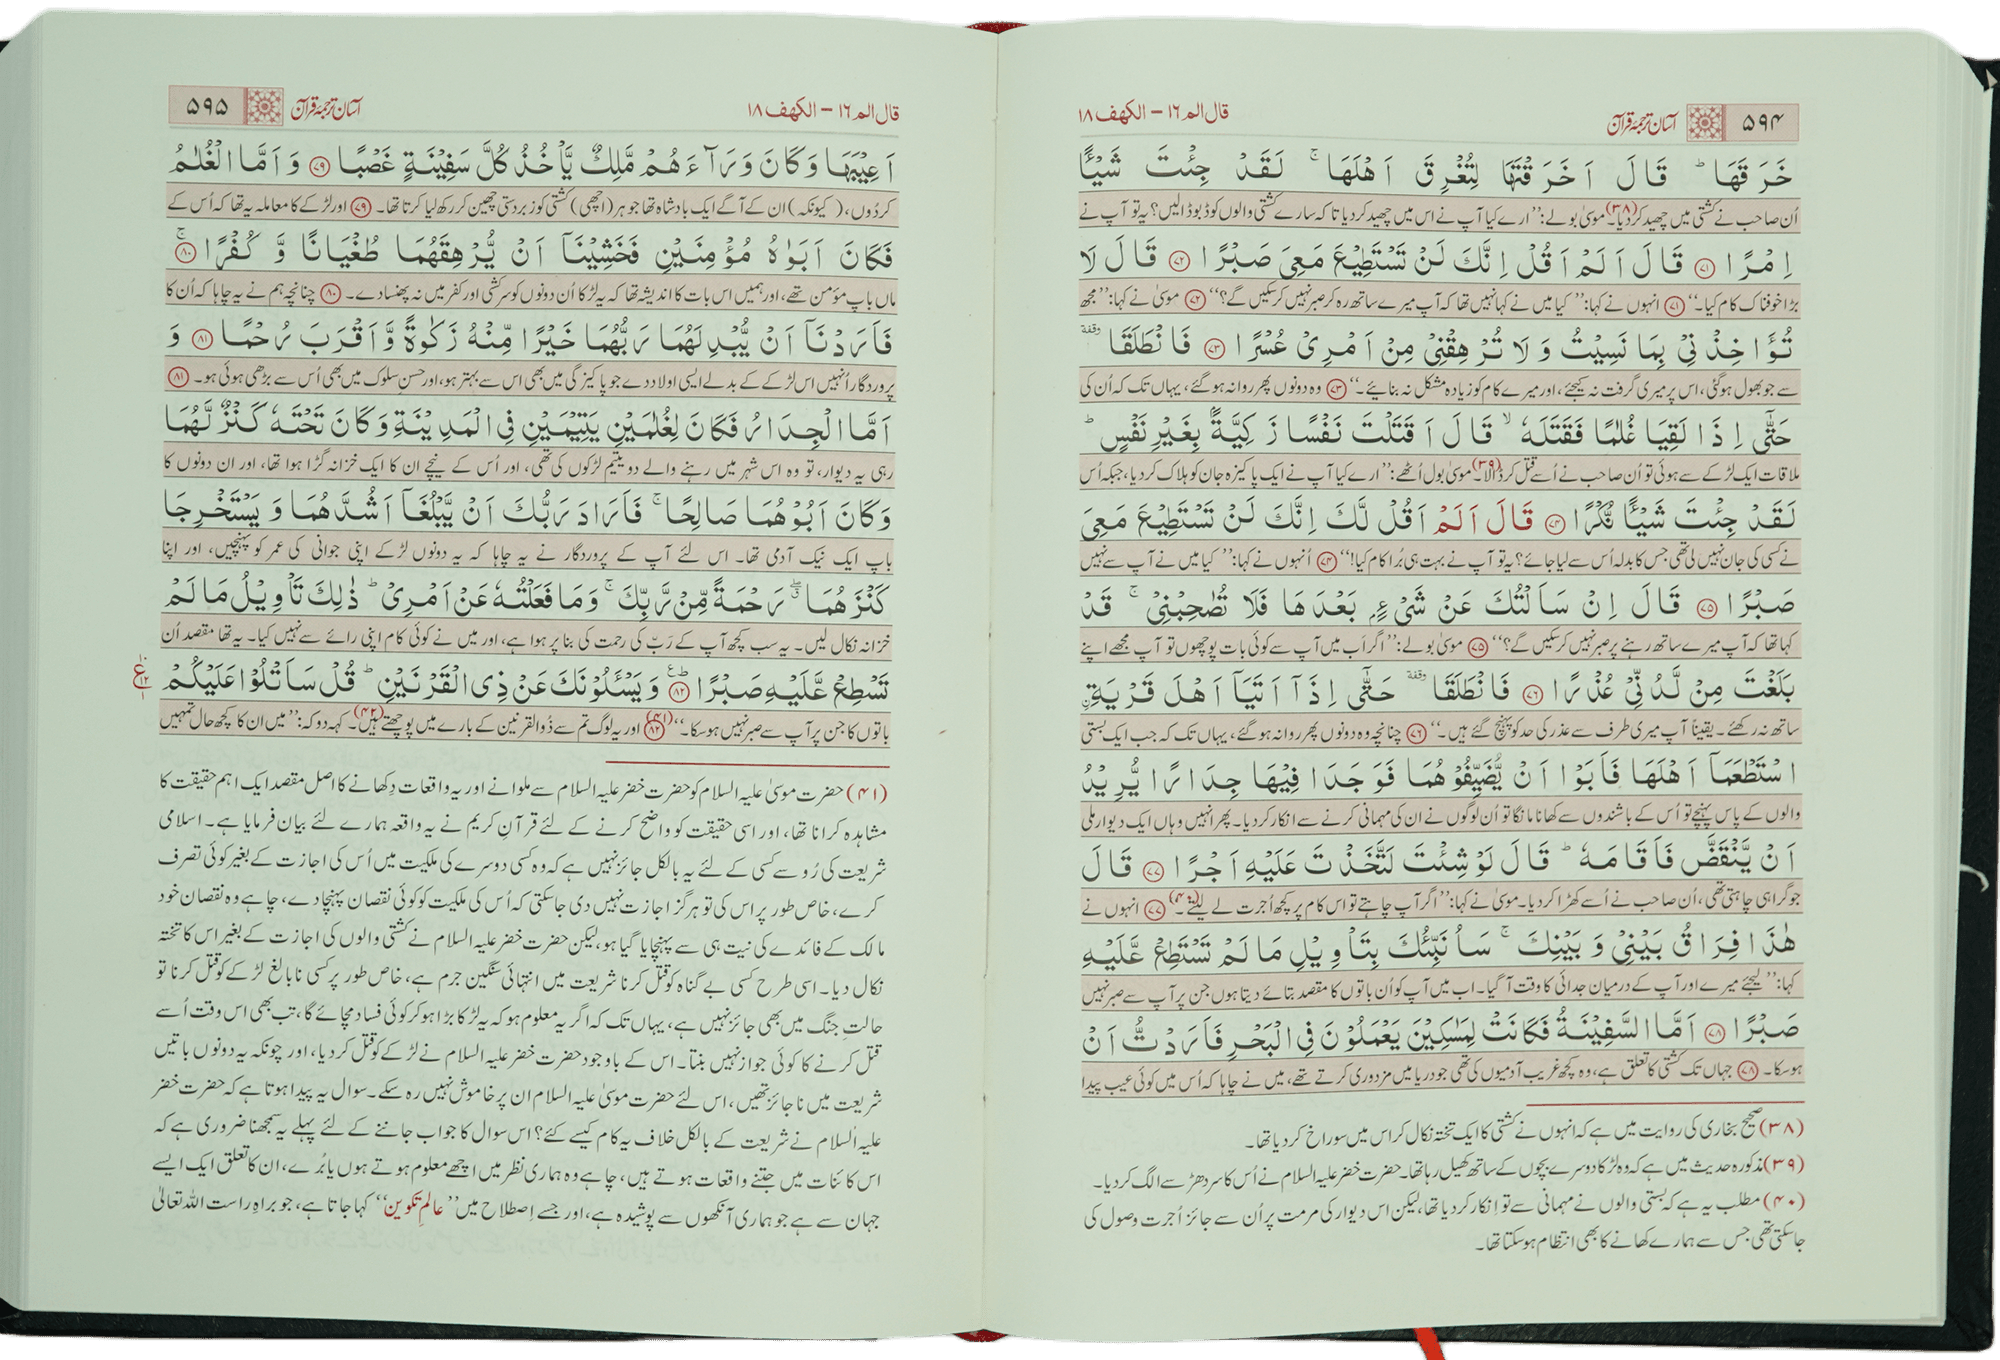 ۵۹۴ آسان ترجمۂ قرآن قال الم ۱٦ – الکهف ۱۸
خَرَقَهَا ؕ قَالَ اَخَرَقْتَهَا لِتُغْرِقَ اَهْلَهَا ۚ لَقَدْ جِئْتَ شَيْـًٔا
اُن صاحب نے کشتی میں چھید کردیا۔(۳۸) موسیٰ بولے: ’’ارے کیا آپ نے اس میں چھید کردیا تاکہ سارے کشتی والوں کو ڈبو ڈالیں؟ یہ تو آپ نے
اِمْرًا ۷۱ قَالَ اَلَمْ اَقُلْ اِنَّكَ لَنْ تَسْتَطِيْعَ مَعِيَ صَبْرًا ۷۲ قَالَ لَا
بڑا خوفناک کام کیا۔‘‘ ۷۱ انہوں نے کہا: ’’کیا میں نے کہا نہیں تھا کہ آپ میرے ساتھ رہ کر صبر نہیں کرسکیں گے؟‘‘ ۷۲ موسیٰ نے کہا: ’’مجھ
تُؤَاخِذْنِيْ بِمَا نَسِيْتُ وَ لَا تُرْهِقْنِيْ مِنْ اَمْرِيْ عُسْرًا ۷۳ فَانْطَلَقَا وقفة
سے جو بھول ہوگئی، اس پر میری گرفت نہ کیجئے، اور میرے کام کو زیادہ مشکل نہ بنائیے۔‘‘ ۷۳ وہ دونوں پھر روانہ ہوگئے، یہاں تک کہ اُن کی
حَتّٰۤى اِذَا لَقِيَا غُلٰمًا فَقَتَلَهٗ ۙ قَالَ اَقَتَلْتَ نَفْسًا زَكِيَّةًۢ بِغَيْرِ نَفْسٍ ؕ
ملاقات ایک لڑکے سے ہوئی تو اُن صاحب نے اُسے قتل کر ڈالا۔(۳۹) موسیٰ بول اُٹھے: ’’ارے کیا آپ نے ایک پاکیزہ جان کو ہلاک کردیا، جبکہ اُس
لَقَدْ جِئْتَ شَيْـًٔا نُّكْرًا ۷۴ قَالَ اَلَمْ اَقُلْ لَّكَ اِنَّكَ لَنْ تَسْتَطِيْعَ مَعِيَ
نے کسی کی جان نہیں لی تھی جس کا بدلہ اُس سے لیا جائے؟ یہ تو آپ نے بہت ہی بُرا کام کیا!‘‘ ۷۴ اُنہوں نے کہا: ’’کیا میں نے آپ سے نہیں
صَبْرًا ۷۵ قَالَ اِنْ سَاَلْتُكَ عَنْ شَيْءٍۭ بَعْدَهَا فَلَا تُصٰحِبْنِيْ ۚ قَدْ
کہا تھا کہ آپ میرے ساتھ رہنے پر صبر نہیں کرسکیں گے؟‘‘ ۷۵ موسیٰ بولے: ’’اگر اَب میں آپ سے کوئی بات پوچھوں تو آپ مجھے اپنے
بَلَغْتَ مِنْ لَّدُنِّيْ عُذْرًا ۷۶ فَانْطَلَقَا وقفة حَتّٰۤى اِذَاۤ اَتَيَاۤ اَهْلَ قَرْيَةِ
ساتھ نہ رکھئے۔ یقیناً آپ میری طرف سے عذر کی حد کو پہنچ گئے ہیں۔‘‘ ۷۶ چنانچہ وہ دونوں پھر روانہ ہوگئے، یہاں تک کہ جب ایک بستی
اسْتَطْعَمَاۤ اَهْلَهَا فَاَبَوْا اَنْ يُّضَيِّفُوْهُمَا فَوَجَدَا فِيْهَا جِدَارًا يُّرِيْدُ
والوں کے پاس پہنچے تو اُس کے باشندوں سے کھانا مانگا تو اُن لوگوں نے ان کی مہمانی کرنے سے انکار کردیا۔ پھر انہیں وہاں ایک دیوار ملی
اَنْ يَّنْقَضَّ فَاَقَامَهٗ ؕ قَالَ لَوْ شِئْتَ لَتَّخَذْتَ عَلَيْهِ اَجْرًا ۷۷ قَالَ
جو گرا ہی چاہتی تھی، اُن صاحب نے اُسے کھڑا کردیا۔ موسیٰ نے کہا: ’’اگر آپ چاہتے تو اس کام پر کچھ اُجرت لے لیتے۔‘‘(۴۰) ۷۷ انہوں نے
هٰذَا فِرَاقُ بَيْنِيْ وَ بَيْنِكَ ۚ سَاُنَبِّئُكَ بِتَاْوِيْلِ مَا لَمْ تَسْتَطِعْ عَّلَيْهِ
کہا: ’’لیجئے میرے اور آپ کے درمیان جدائی کا وقت آگیا۔ اب میں آپ کو اُن باتوں کا مقصد بتائے دیتا ہوں جن پر آپ سے صبر نہیں
صَبْرًا ۷۸ اَمَّا السَّفِيْنَةُ فَكَانَتْ لِمَسٰكِيْنَ يَعْمَلُوْنَ فِي الْبَحْرِ فَاَرَدْتُّ اَنْ
ہوسکا۔ ۷۸ جہاں تک کشتی کا تعلق ہے، وہ کچھ غریب آدمیوں کی تھی جو دریا میں مزدوری کرتے تھے، میں نے چاہا کہ اُس میں کوئی عیب پیدا
(۳۸) صحیح بخاری کی روایت میں ہے کہ انہوں نے کشتی کا ایک تختہ نکال کر اس میں سوراخ کردیا تھا۔
(۳۹) مذکورہ حدیث میں ہے کہ وہ لڑکا دوسرے بچوں کے ساتھ کھیل رہا تھا۔ حضرت خضر علیہ السلام نے اُس کا سر دھڑ سے الگ کردیا۔
(۴۰) مطلب یہ ہے کہ بستی والوں نے مہمانی سے تو اِنکار کردیا تھا، لیکن اس دیوار کی مرمت پر اُن سے جائز اُجرت وصول کی
جاسکتی تھی جس سے ہمارے کھانے کا بھی انتظام ہوسکتا تھا۔
قال الم ۱٦ – الکهف ۱۸ آسان ترجمۂ قرآن ۵۹۵
اَعِيْبَهَا وَ كَانَ وَرَآءَهُمْ مَّلِكٌ يَّاْخُذُ كُلَّ سَفِيْنَةٍ غَصْبًا ۷۹ وَ اَمَّا الْغُلٰمُ
کردُوں، (کیونکہ) ان کے آگے ایک بادشاہ تھا جو ہر (اچھی) کشتی کو زبردستی چھین کر رکھ لیا کرتا تھا۔ ۷۹ اور لڑکے کا معاملہ یہ تھا کہ اُس کے
فَكَانَ اَبَوٰهُ مُؤْمِنَيْنِ فَخَشِيْنَاۤ اَنْ يُّرْهِقَهُمَا طُغْيَانًا وَّ كُفْرًا ۸۰ ۚ
ماں باپ مؤمن تھے، اور ہمیں اس بات کا اندیشہ تھا کہ یہ لڑکا اُن دونوں کو سرکشی اور کفر میں نہ پھنسا دے۔ ۸۰ چنانچہ ہم نے یہ چاہا کہ اُن کا
فَاَرَدْنَاۤ اَنْ يُّبْدِلَهُمَا رَبُّهُمَا خَيْرًا مِّنْهُ زَكٰوةً وَّ اَقْرَبَ رُحْمًا ۸۱ وَ
پروردگار اُنہیں اس لڑکے کے بدلے ایسی اولاد دے جو پاکیزگی میں بھی اس سے بہتر ہو، اور حسنِ سلوک میں بھی اُس سے بڑھی ہوئی ہو۔ ۸۱
اَمَّا الْجِدَارُ فَكَانَ لِغُلٰمَيْنِ يَتِيْمَيْنِ فِي الْمَدِيْنَةِ وَ كَانَ تَحْتَهٗ كَنْزٌ لَّهُمَا
رہی یہ دیوار، تو وہ اس شہر میں رہنے والے دو یتیم لڑکوں کی تھی، اور اُس کے نیچے ان کا ایک خزانہ گڑا ہوا تھا، اور ان دونوں کا
وَ كَانَ اَبُوْهُمَا صَالِحًا ۚ فَاَرَادَ رَبُّكَ اَنْ يَّبْلُغَاۤ اَشُدَّهُمَا وَ يَسْتَخْرِجَا
باپ ایک نیک آدمی تھا۔ اس لئے آپ کے پروردگار نے یہ چاہا کہ یہ دونوں لڑکے اپنی جوانی کی عمر کو پہنچیں، اور اپنا
كَنْزَهُمَا ۖ رَحْمَةً مِّنْ رَّبِّكَ ۚ وَ مَا فَعَلْتُهٗ عَنْ اَمْرِيْ ؕ ذٰلِكَ تَاْوِيْلُ مَا لَمْ
خزانہ نکال لیں۔ یہ سب کچھ آپ کے رَبّ کی رحمت کی بنا پر ہوا ہے، اور میں نے کوئی کام اپنی رائے سے نہیں کیا۔ یہ تھا مقصد اُن
تَسْطِعْ عَّلَيْهِ صَبْرًا ۸۲ ؕ وَ يَسْـَٔلُوْنَكَ عَنْ ذِي الْقَرْنَيْنِ ؕ قُلْ سَاَتْلُوْا عَلَيْكُمْ
باتوں کا جن پر آپ سے صبر نہیں ہوسکا۔‘‘(۴۱) ۸۲ اور یہ لوگ تم سے ذُوالقرنین کے بارے میں پوچھتے ہیں۔(۴۲) کہہ دو کہ: ’’میں ان کا کچھ حال تمہیں
(۴۱) حضرت موسیٰ علیہ السلام کو حضرت خضر علیہ السلام سے ملوانے اور یہ واقعات دِکھانے کا اصل مقصد ایک اہم حقیقت کا
مشاہدہ کرانا تھا، اور اسی حقیقت کو واضح کرنے کے لئے قرآنِ کریم نے یہ واقعہ ہمارے لئے بیان فرمایا ہے۔ اسلامی
شریعت کی رُو سے کسی کے لئے یہ بالکل جائز نہیں ہے کہ وہ کسی دوسرے کی ملکیت میں اُس کی اجازت کے بغیر کوئی تصرف
کرے، خاص طور پر اس کی تو ہرگز اجازت نہیں دی جاسکتی کہ اُس کی ملکیت کو کوئی نقصان پہنچا دے، چاہے وہ نقصان خود
مالک کے فائدے کی نیت ہی سے پہنچایا گیا ہو، لیکن حضرت خضر علیہ السلام نے کشتی والوں کی اجازت کے بغیر اس کا تختہ
نکال دیا۔ اسی طرح کسی بے گناہ کو قتل کرنا شریعت میں انتہائی سنگین جرم ہے، خاص طور پر کسی نابالغ لڑکے کو قتل کرنا تو
حالتِ جنگ میں بھی جائز نہیں ہے، یہاں تک کہ اگر یہ معلوم ہو کہ یہ لڑکا بڑا ہوکر کوئی فساد مچائے گا، تب بھی اس وقت اُسے
قتل کرنے کا کوئی جواز نہیں بنتا۔ اس کے باوجود حضرت خضر علیہ السلام نے لڑکے کو قتل کردیا، اور چونکہ یہ دونوں باتیں
شریعت میں ناجائز تھیں، اس لئے حضرت موسیٰ علیہ السلام ان پر خاموش نہیں رہ سکے۔ سوال یہ پیدا ہوتا ہے کہ حضرت خضر
علیہ السلام نے شریعت کے بالکل خلاف یہ کام کیسے کئے؟ اس سوال کا جواب جاننے کے لئے پہلے یہ سمجھنا ضروری ہے کہ
اس کائنات میں جتنے واقعات ہوتے ہیں، چاہے وہ ہماری نظر میں اچھے معلوم ہوتے ہوں یا بُرے، ان کا تعلق ایک ایسے
جہان سے ہے جو ہماری آنکھوں سے پوشیدہ ہے، اور جسے اِصطلاح میں ’’عالمِ تکوین‘‘ کہا جاتا ہے، جو براہِ راست اللہ تعالیٰ